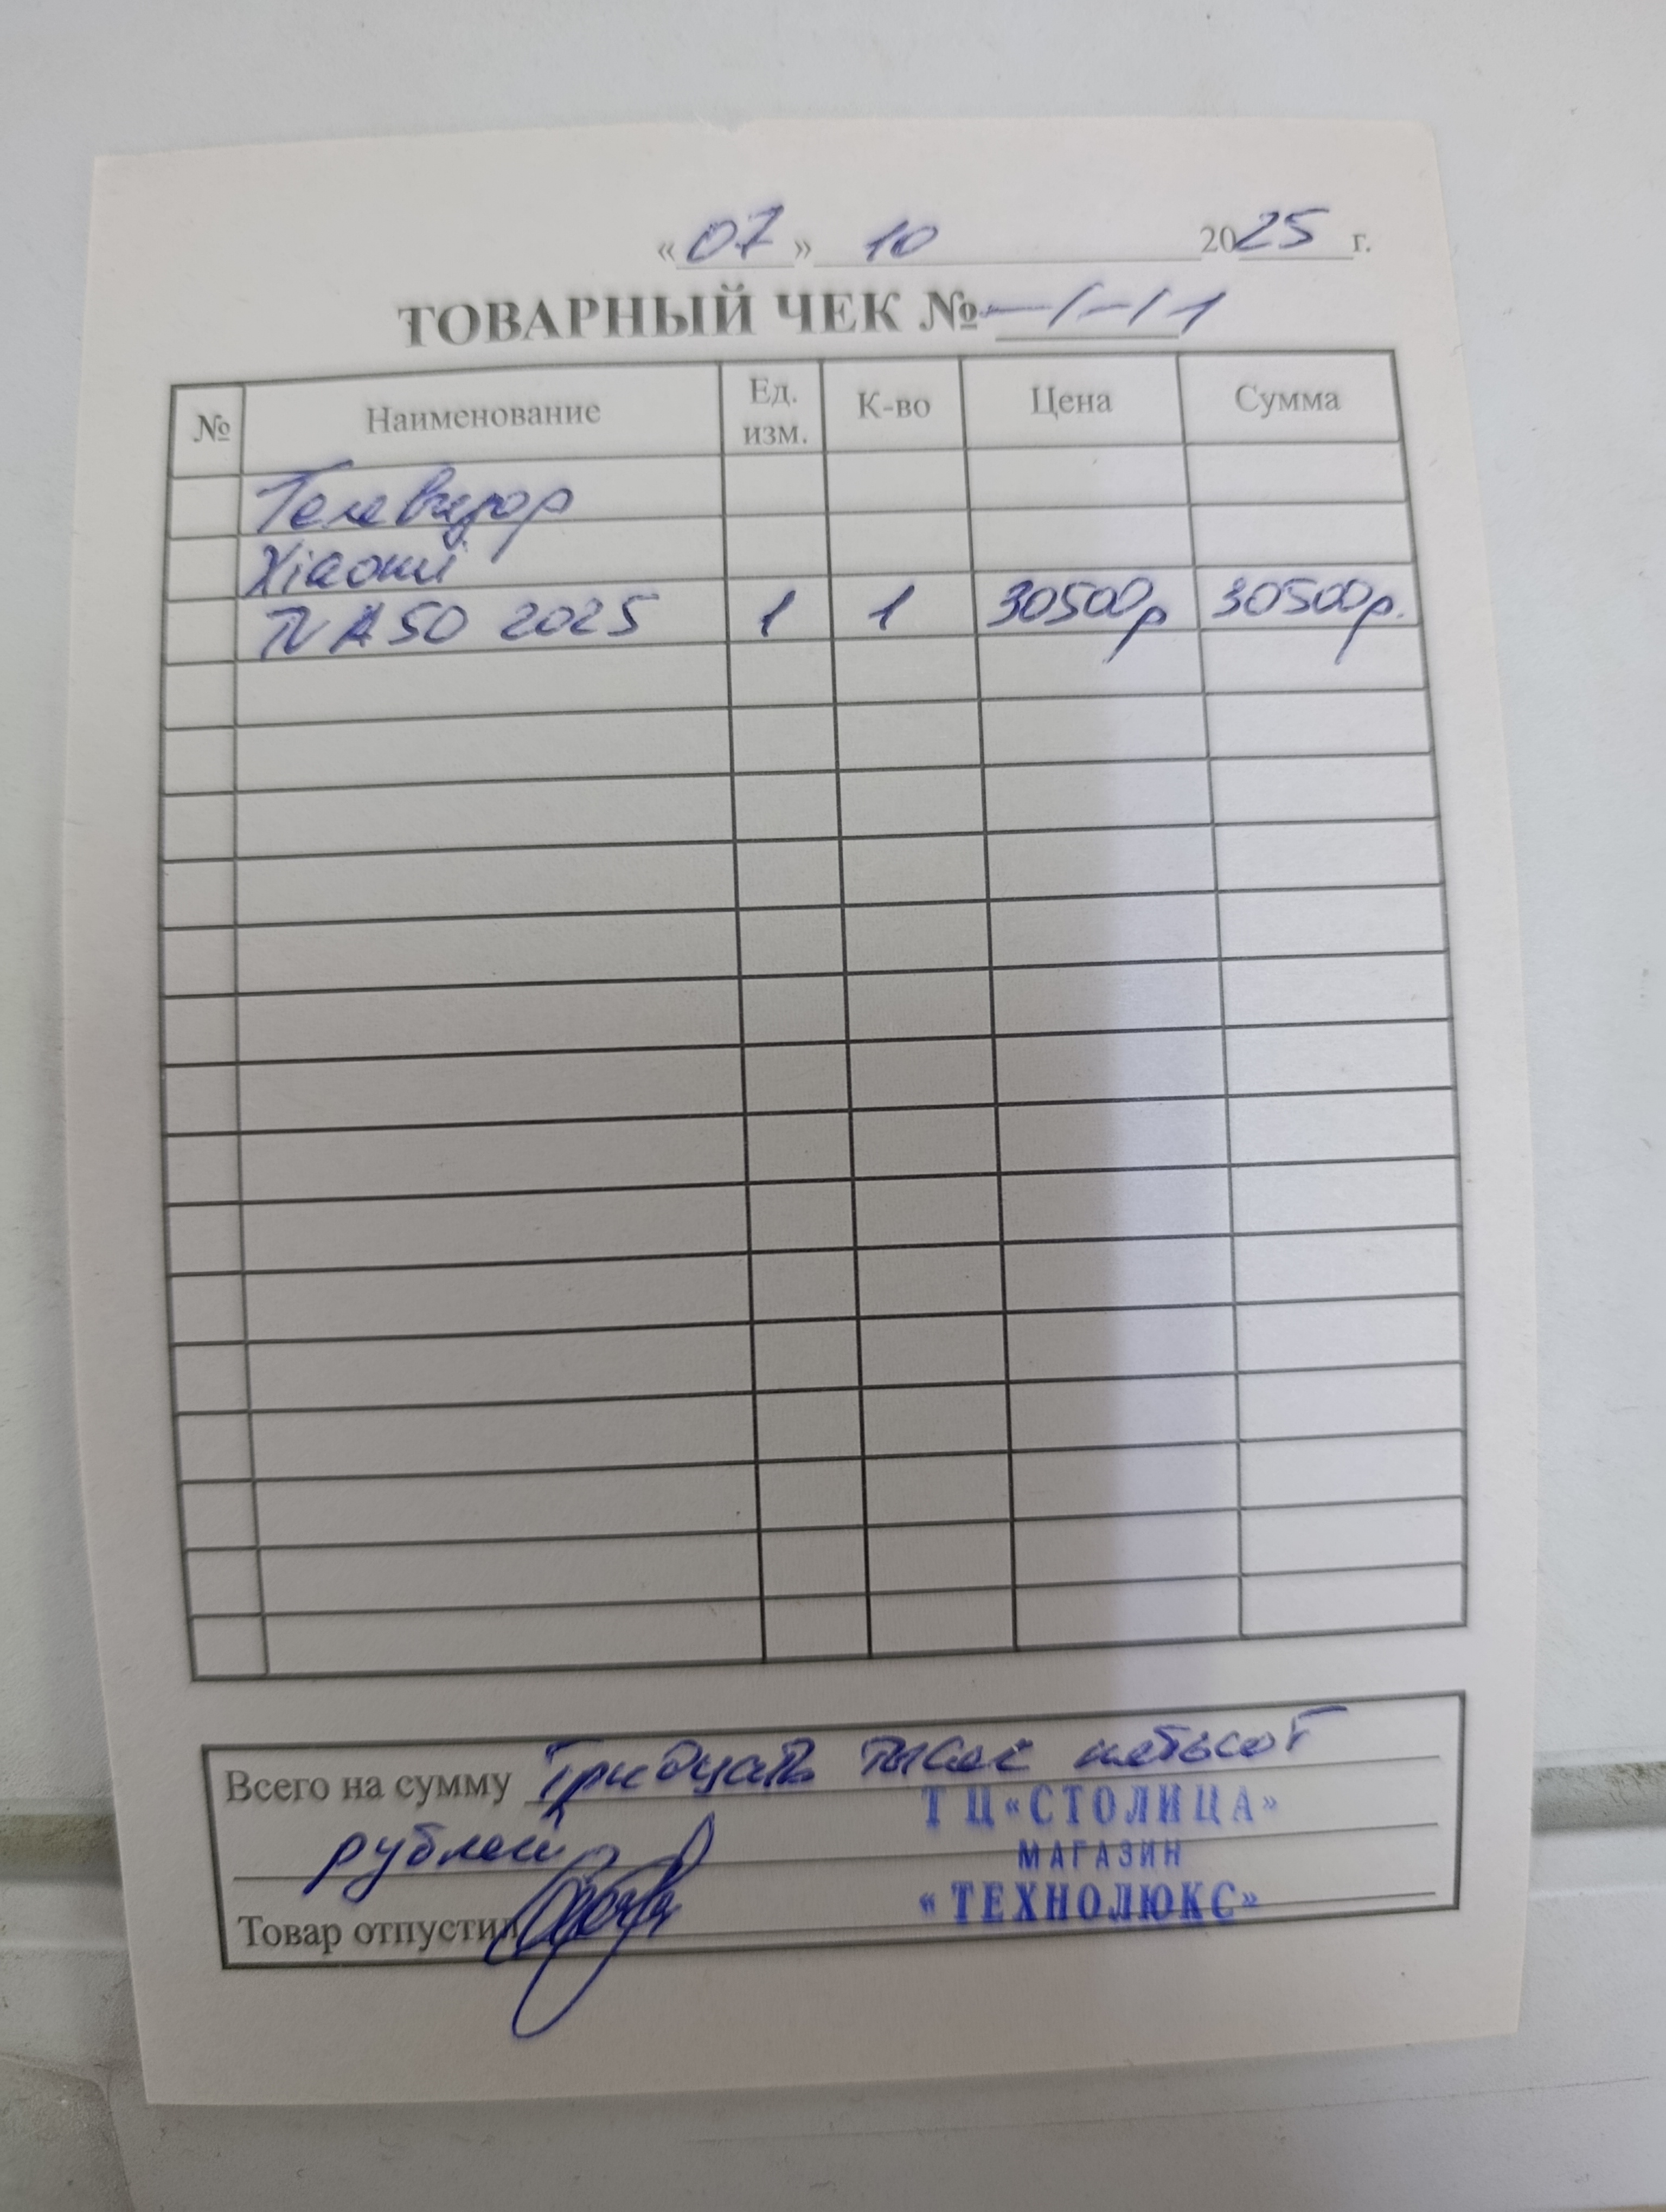 «07» 10 2025 г.
ТОВАРНЫЙ ЧЕК №
№ Наименование Ед. изм. К-во Цена Сумма
Телевизор
Xiaomi
TV A50 2025 1 1 30500р 30500р.
Всего на сумму Тридцать тысяч пятьсот
ТЦ «СТОЛИЦА»
рублей
МАГАЗИН
«ТЕХНОЛЮКС»
Товар отпустил